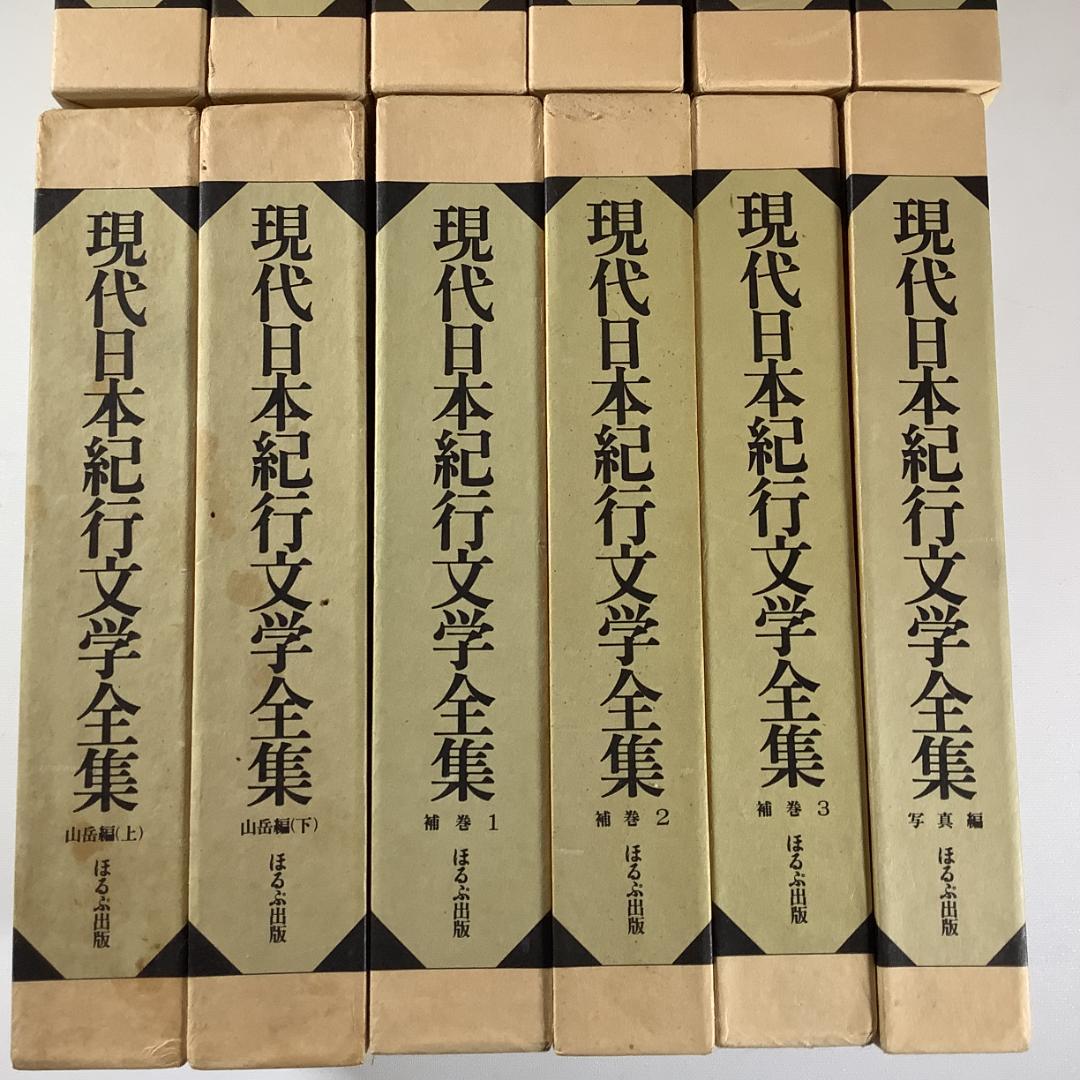 現代日本紀行文学全集
山岳編(上)
ほるぷ出版
現代日本紀行文学全集
山岳編(下)
ほるぷ出版
現代日本紀行文学全集
補巻1
ほるぷ出版
現代日本紀行文学全集
補巻2
ほるぷ出版
現代日本紀行文学全集
補巻3
ほるぷ出版
現代日本紀行文学全集
写真編
ほるぷ出版